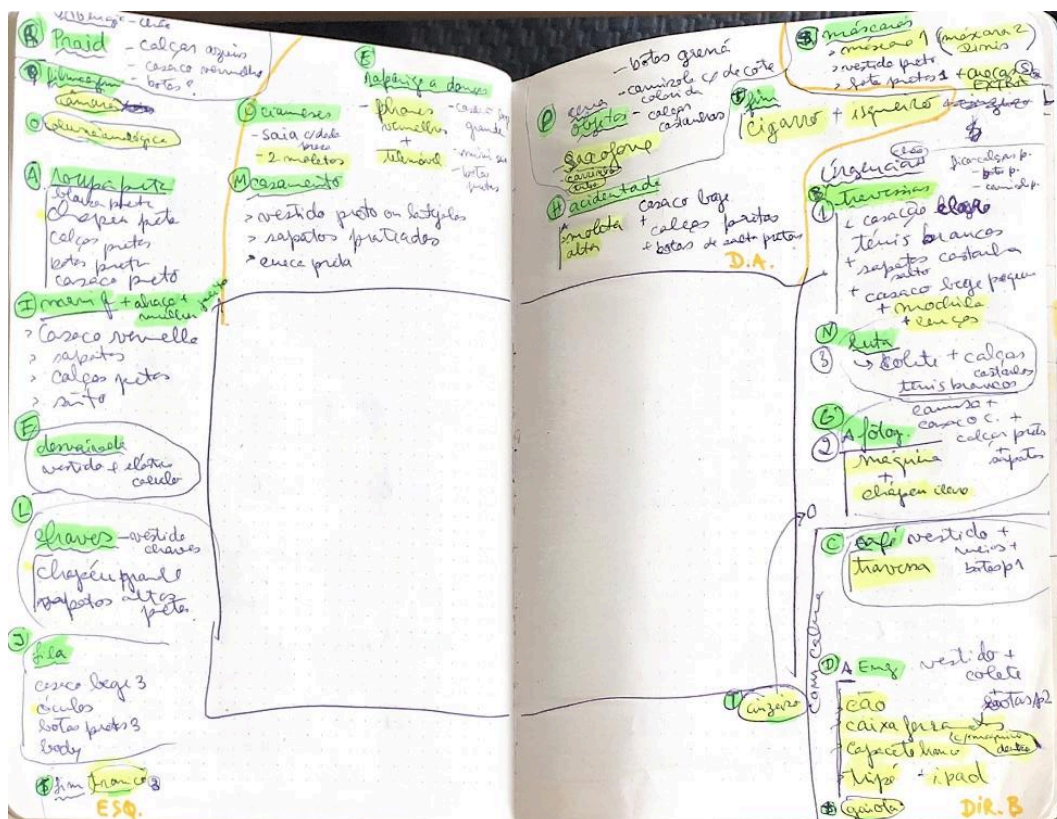 R Praid - calças azuis
- casaco vermelho
- botas?
câmara
O
A roupa preta
blusa preta
chapéu preto
calças pretas
botas pretas
casaco preto
I manif + abraço +
> Casaco vermelho
> sapatos
> calças pretas
> sinto
E
desvairada
vestido +
L
chaves - vestido
chaves
chapéu grande
sapatos altos
pretos
J
fila
casaco bege 3
óculos
botas pretas 3
body
fim branco
ESQ.
E
rapariga a dançar
- phones
vermelhos
+
telemóvel
- casaco
grande
- botas
pretas
siameses
- saia
- 2 maletas
M casamento
> vestido preto ou
> sapatos prateados
> cueca preta
- botas grená
- camisola c/ decote
colorida
- calças
castanhas
P cena
objetos
saxofone
H acidentada
> moleta
alta
casaco bege
+ calças pretas
+ botas de salto pretas
D.A.
fim
cigarro + isqueiro
máscaras
> máscara 1 (máscara 2
> vestido preto
> bota pretas 1 +
EXTRA
urgencias
fica calças p.
- botas p.
- camisola p.
travessas
1
+ casacão
ténis brancos
+ sapatos castanho
salto
+ casaco bege pequeno
+ mochila
+ lenços
N
luta
3 → colete + calças
castanhas
ténis brancos
G
2 A fotog.
camisa +
casaco c. +
calças pretas
+
sapatos
máquina
+
chapéu claro
C café vestido +
meias +
botas p1
travessa
com calma
D A Eng vestido +
colete
botas p2
cão
caixa ferramentas
capacete branco
tripé - ipad
gaiola
T cinzeiro
DIR. B